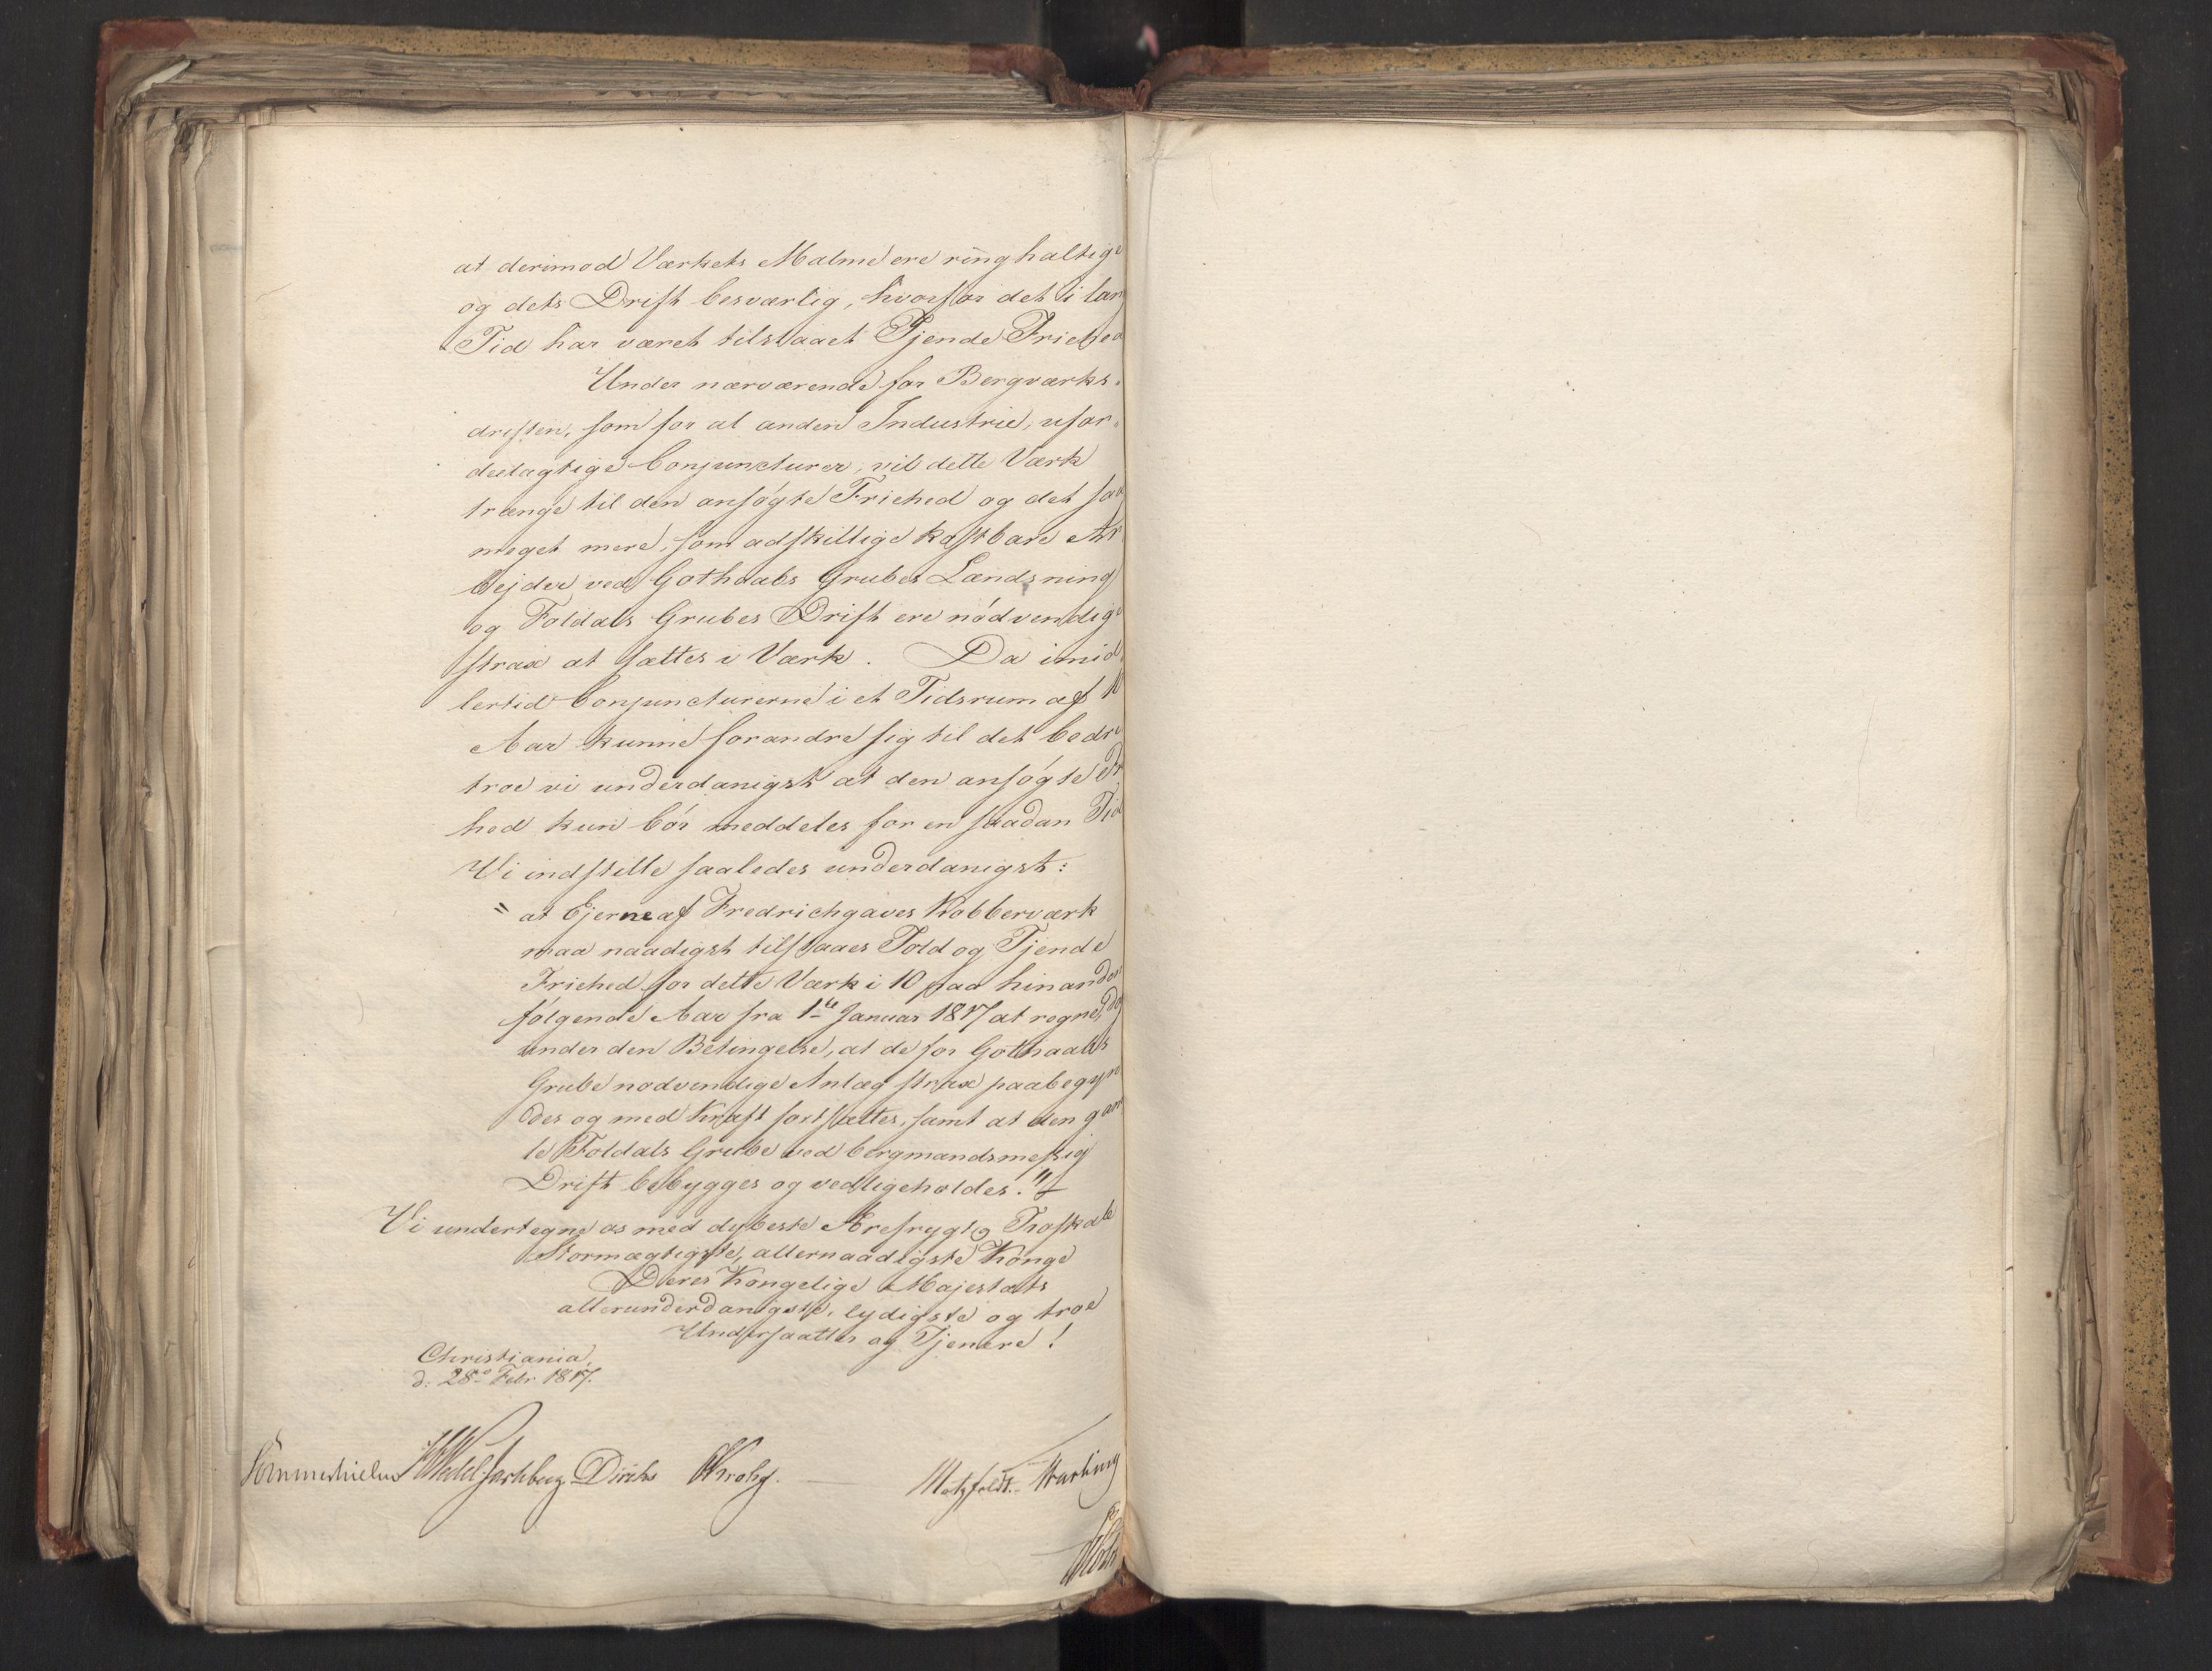 at derimod Værkets Malme ere ringhaltige
og dets Drift besværlig, hvorfor det i lan
Tid har været tilstaaet Tjende Friehed
Under nærværende for Bergværks-
driften, som for al anden Industrie, ufor-
deelagtige Conjuncturer, vil dette Værk
trænge til den ansøgte Friehed og det saa
meget mere, som adskillige kostbare Ar
bejder ved Gothaabs Grubes Lændsning
og Foldals Grubes Drift ere nødvendige
strax at sættes i Værk. Da imid
lertid Conjuncturerne i et Tidsrum af 10
Aar kunne forandre sig til det bedre
troe vi underdanigst at den ansøgte Fr
hed kun bør meddeles for en saadan Tid
Vi indstille saaledes underdanigst:
" at Ejerne af Fredrichgaves Kobberværk
maa naadigst tilstaaes Told og Tjende
Friehed for dette Værk i 10 paa hinanden
følgende Aar fra 1te Januar 1817 at regne, dog
under den Betingelse, at de for Gothaabs
Grube nødvendige Anlæg strax paabegyn
des og med Kraft fortsættes, samt at den gam
le Foldals Grube ved bergmandsmessig
Drift bebygges og vedligeholdes."
Vi undertegne os med dybeste Ærefrygt og Troskab
Stormægtigste, allernaadigste Konge
Deres Kongelige Majestæts
allerunderdanigste, lydigste og troe
Undersaatter og Tjenere!
Christiania,
d: 28de Febr 1817.
Sommerhielm Wedel Jarlsberg Diriks Krohg. Motzfeldt.